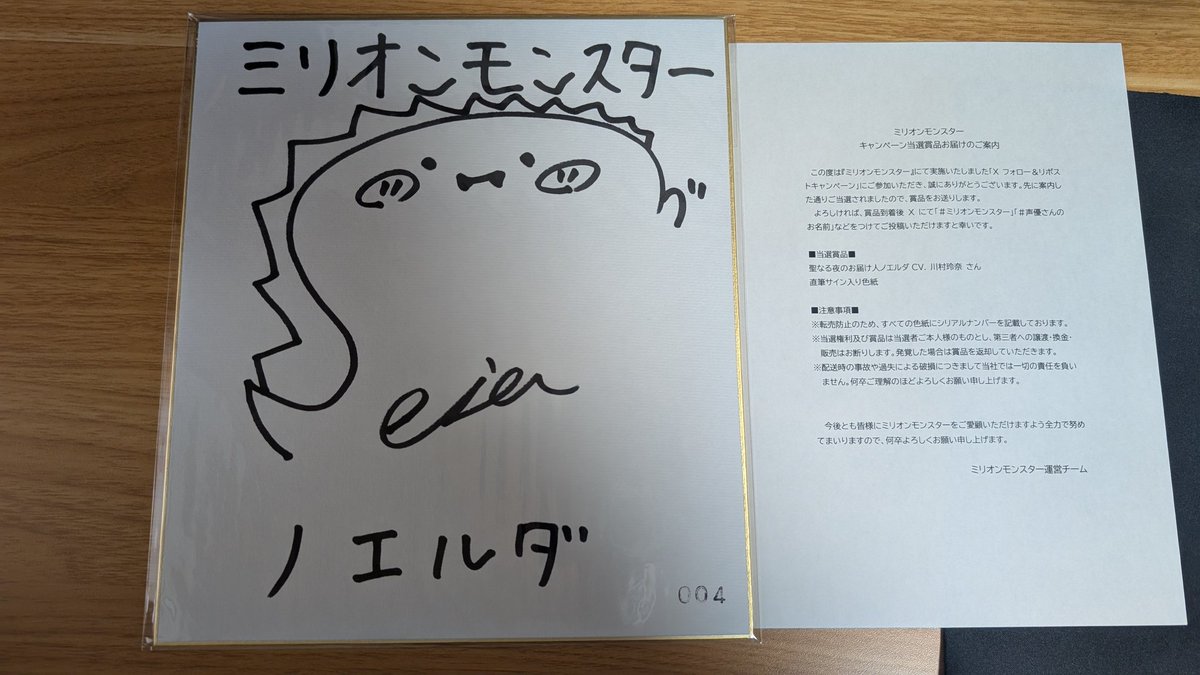 ミリオンモンスター
グ
ノエルダ
004
ミリオンモンスター
キャンペーン当選賞品お届けのご案内
この度は『ミリオンモンスター』にて実施いたしました「X フォロー＆リポス
トキャンペーン」にご参加いただき、誠にありがとうございます。先に案内し
た通りご当選されましたので、賞品をお送りします。
よろしければ、賞品到着後 X にて「#ミリオンモンスター」「#声優さんの
お名前」などをつけてご投稿いただけますと幸いです。
■当選賞品■
聖なる夜のお届け人ノエルダ CV. 川村玲奈 さん
直筆サイン入り色紙
■注意事項■
※転売防止のため、すべての色紙にシリアルナンバーを記載しております。
※当選権利及び賞品は当選者ご本人様のものとし、第三者への譲渡・換金・
販売はお断りします。発覚した場合は賞品を返却していただきます。
※配送時の事故や過失による破損につきまして当社では一切の責任を負い
ません。何卒ご理解のほどよろしくお願い申し上げます。
今後とも皆様にミリオンモンスターをご愛顧いただけますよう全力で努め
てまいりますので、何卒よろしくお願い申し上げます。
ミリオンモンスター運営チーム